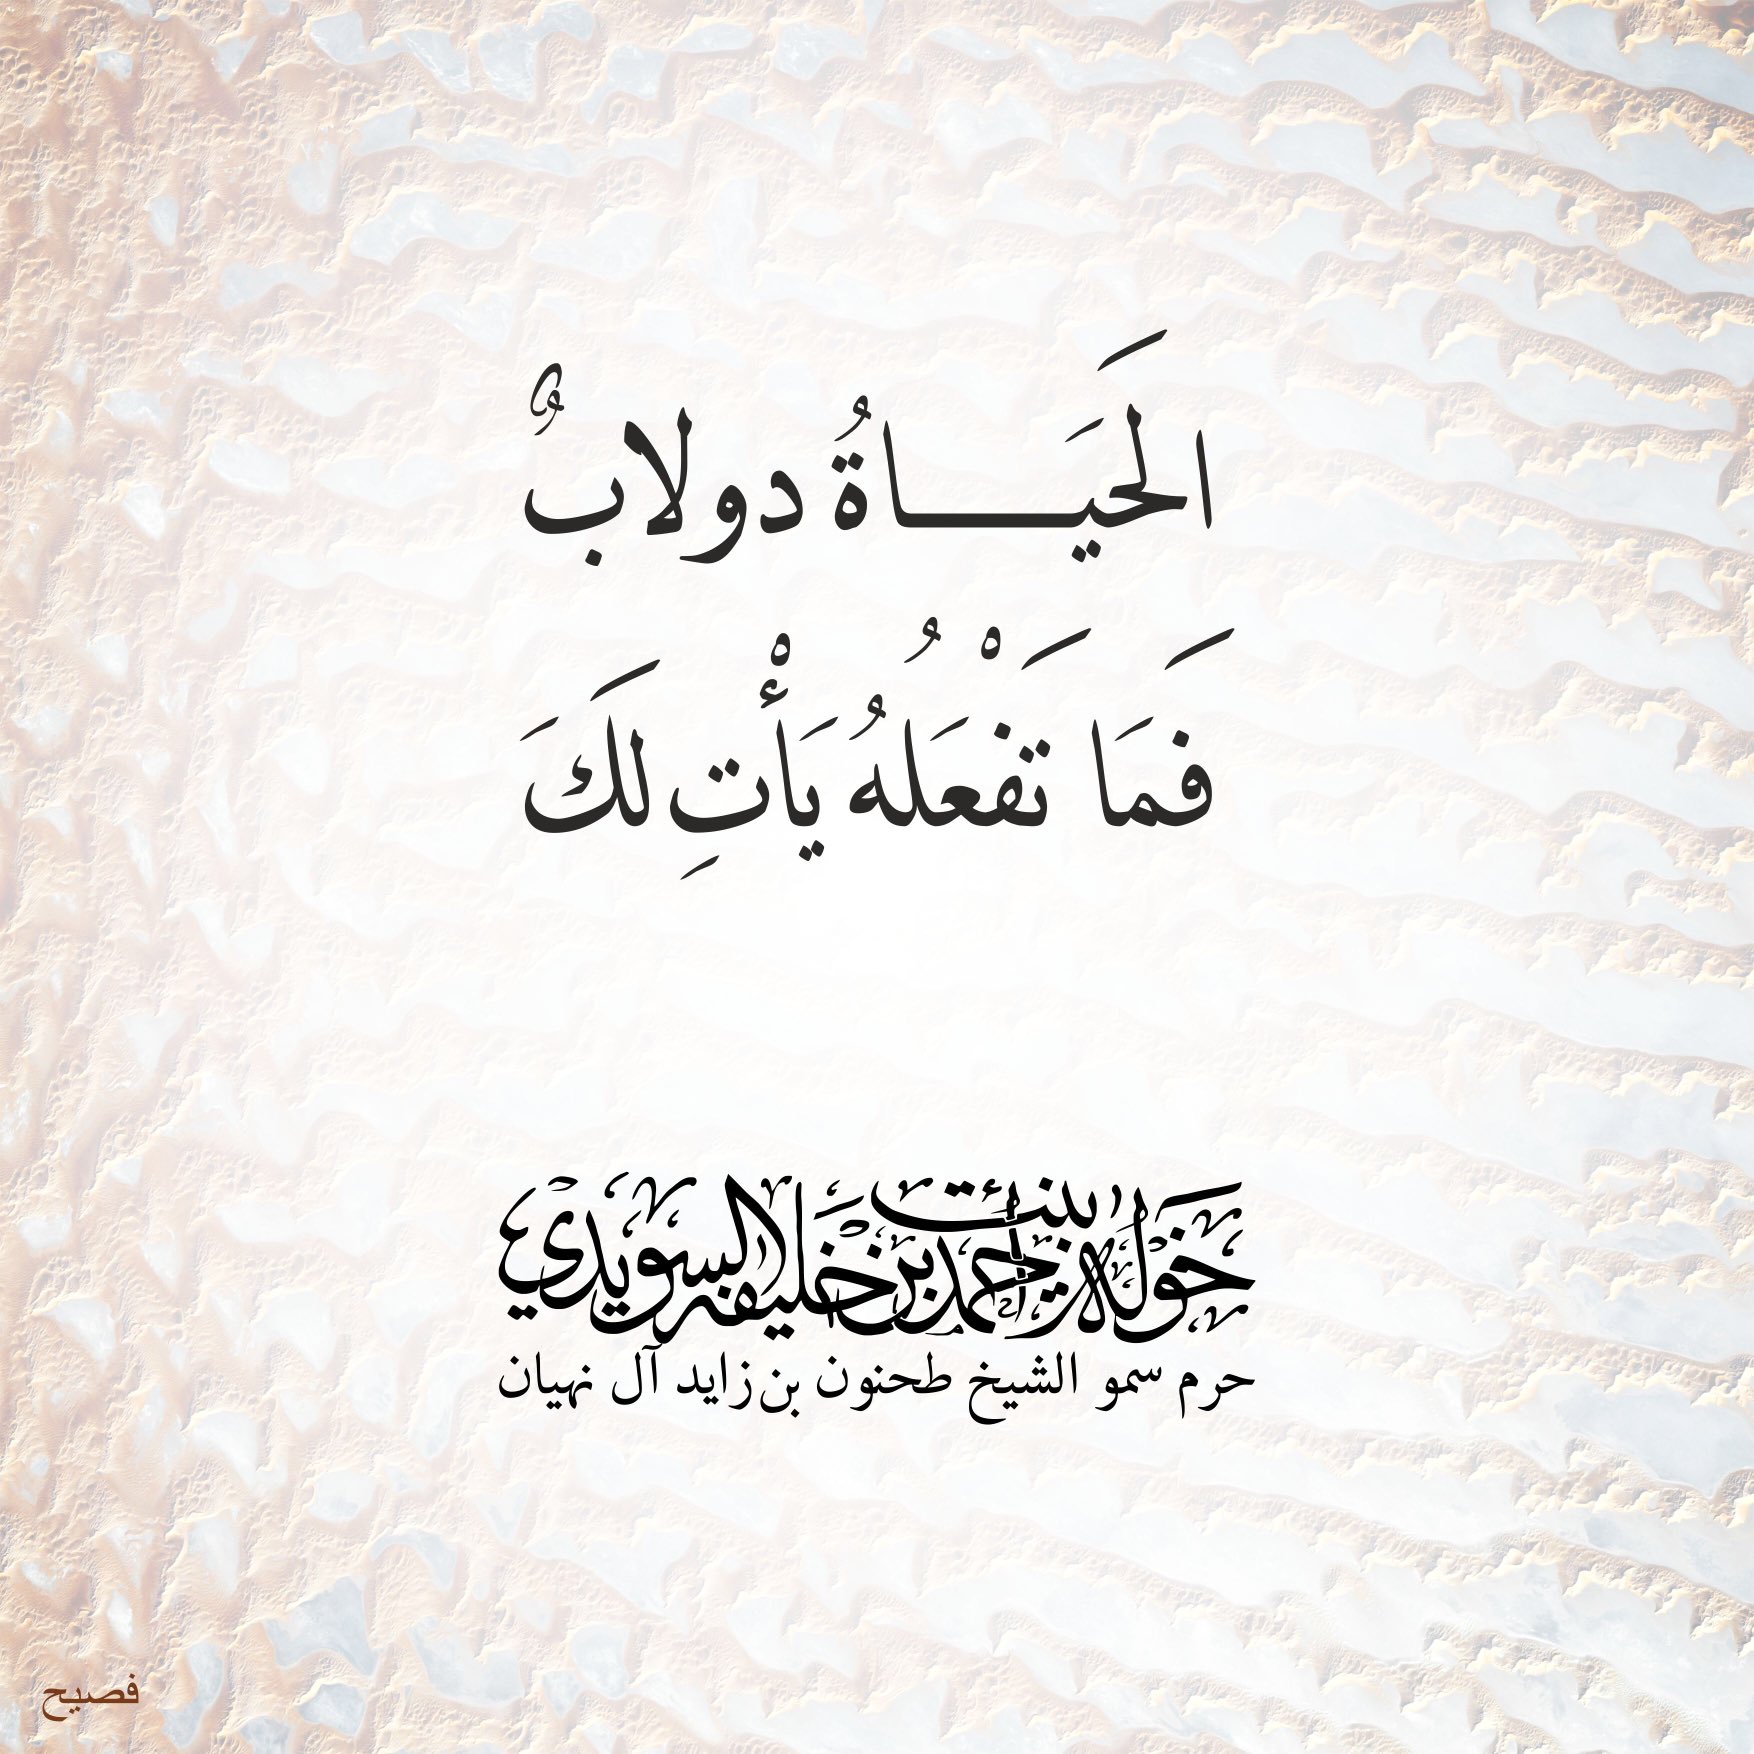 الحَيَـــاةُ دولابٌ
فَمَا تَفْعَلُهُ يَأْتِ لَكَ
خوله بنت احمد بن خليفه السويدي
حرم سمو الشيخ طحنون بن زايد آل نهيان
فصيح